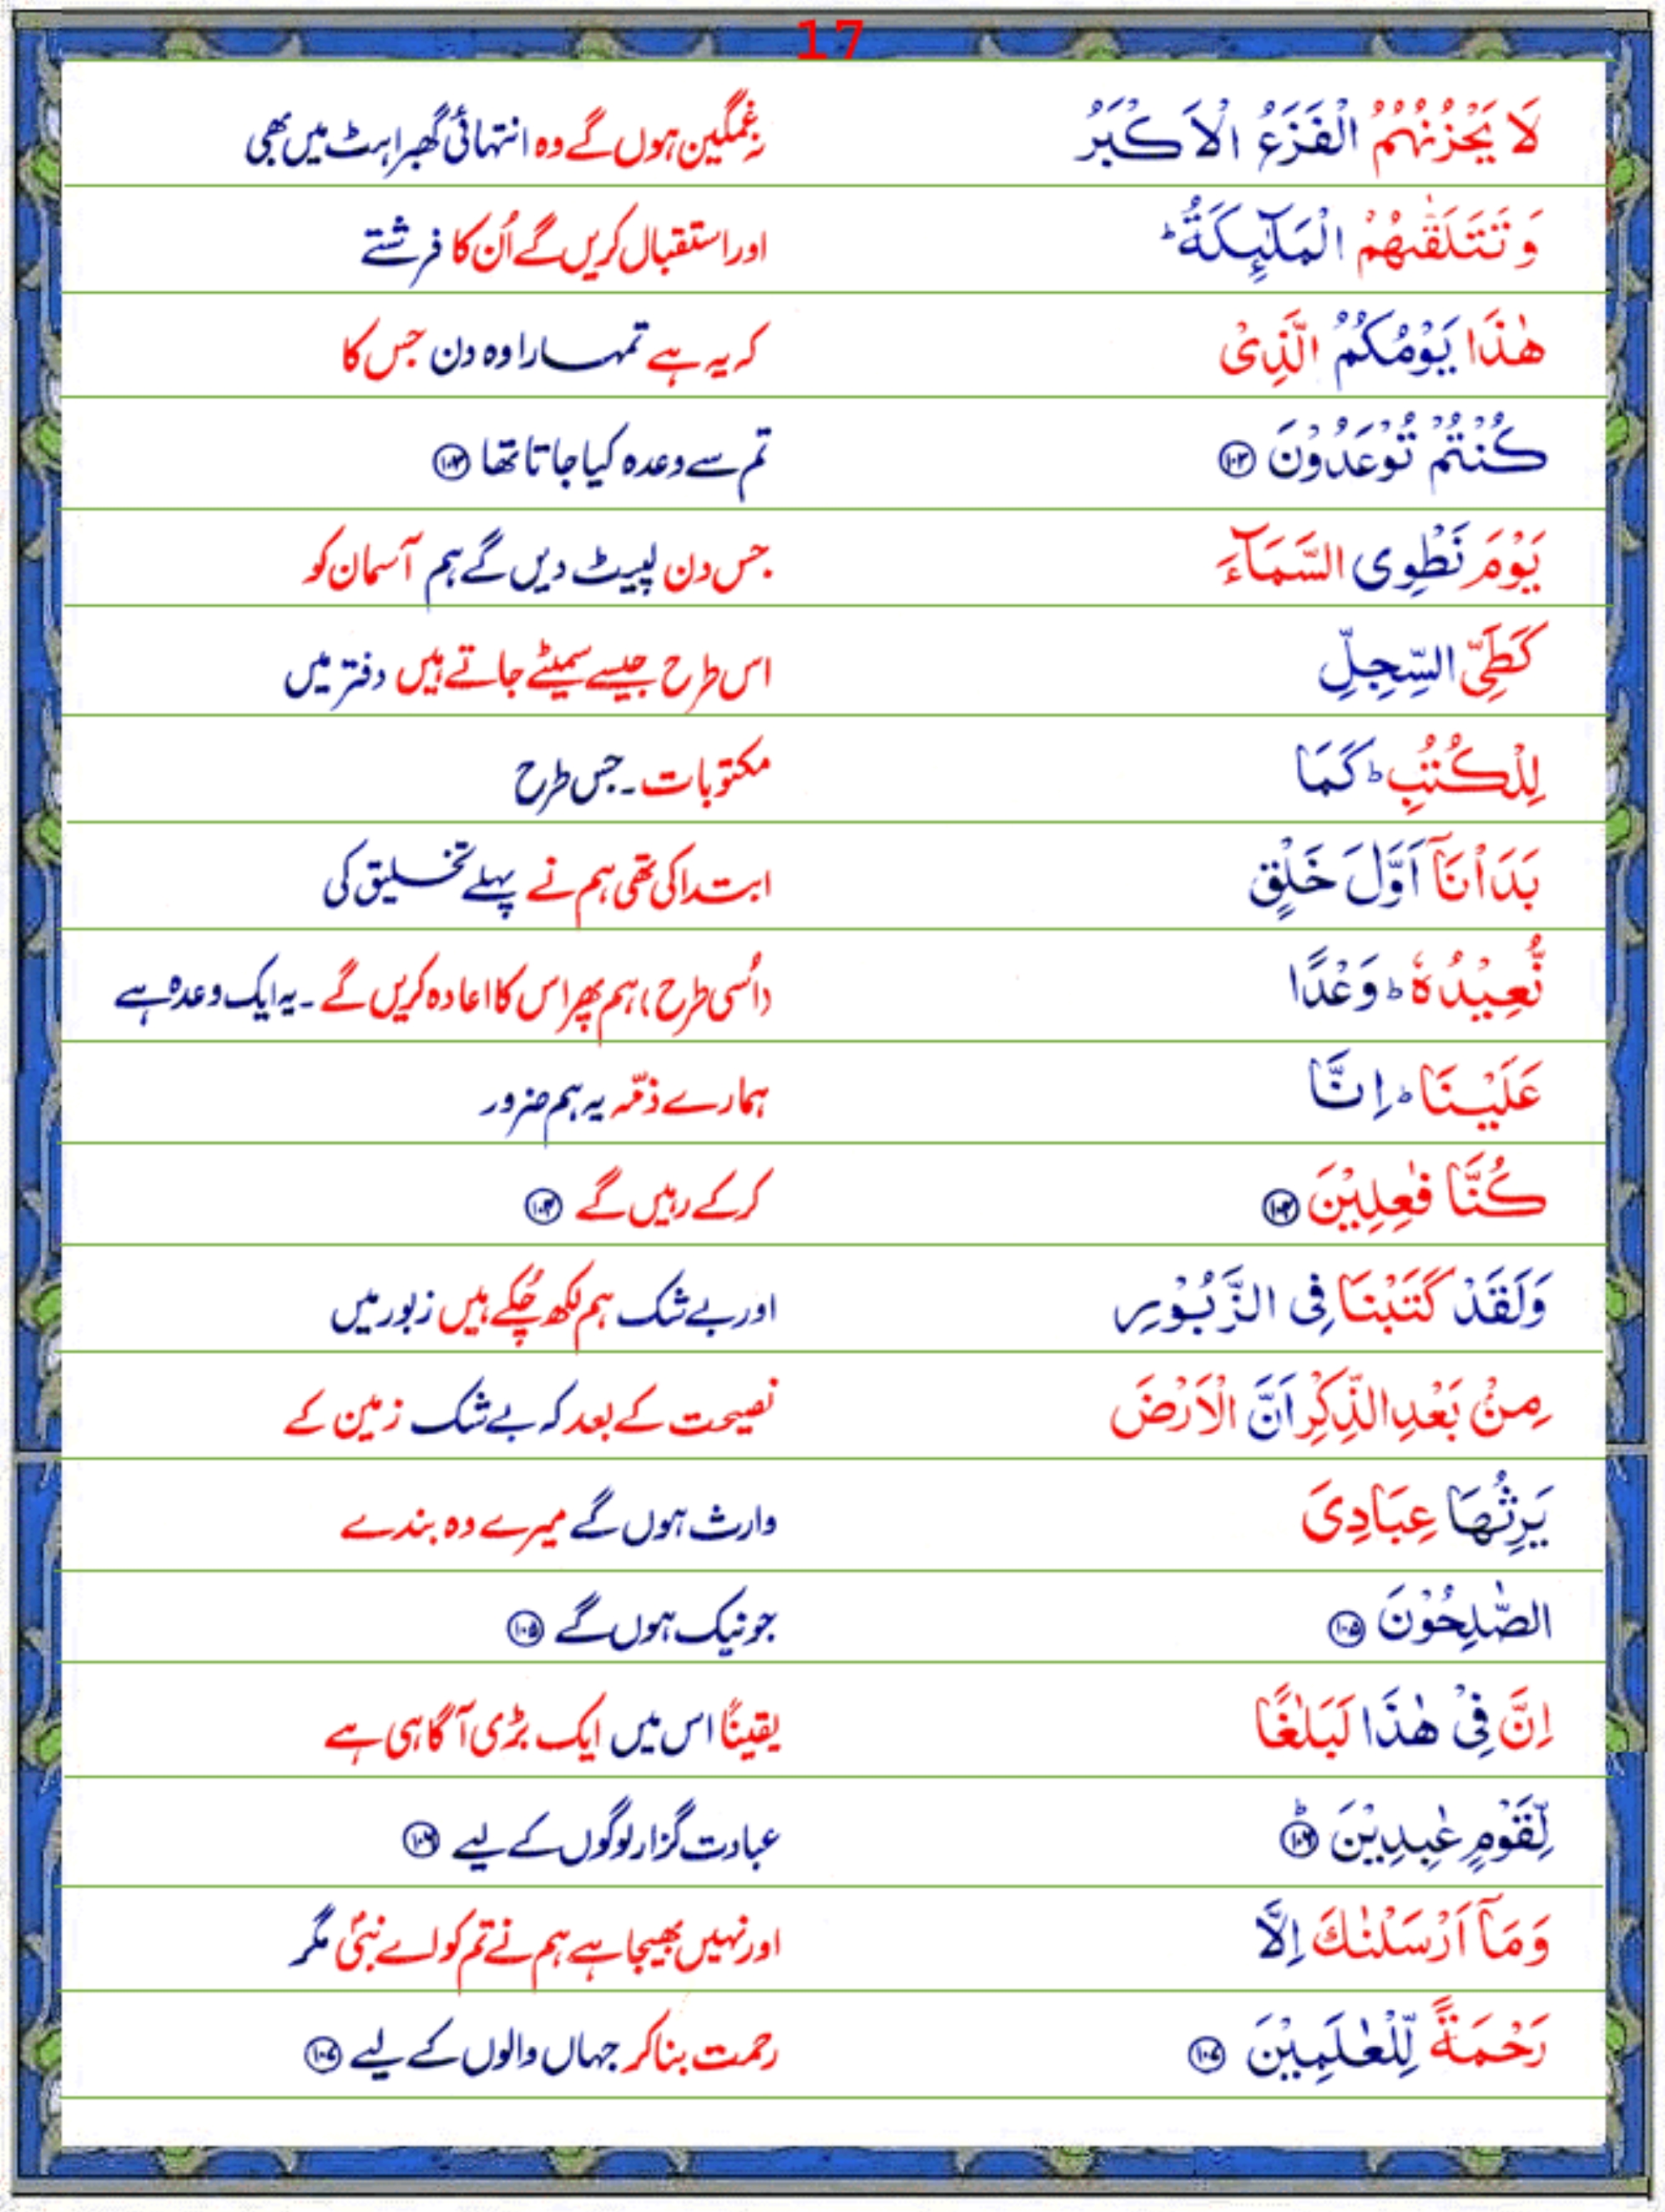 17
لَا يَحْزُنُهُمُ الْفَزَعُ الْاَكْبَرُ نہ غمگین ہوں گے وہ انتہائی گھبراہٹ میں بھی
وَ تَتَلَقّٰىهُمُ الْمَلٰٓئِكَةُ ؕ اور استقبال کریں گے اُن کا فرشتے
هٰذَا يَوْمُكُمُ الَّذِىْ کہ یہ ہے تمہارا وہ دن جس کا
كُنْتُمْ تُوْعَدُوْنَ ۱۰۳ تم سے وعدہ کیا جاتا تھا ۱۰۳
يَوْمَ نَطْوِى السَّمَآءَ جس دن لپیٹ دیں گے ہم آسمان کو
كَطَىِّ السِّجِلِّ اس طرح جیسے سمیٹے جاتے ہیں دفتر میں
لِلْكُتُبِ ؕ كَمَا مکتوبات۔ جس طرح
بَدَاْنَاۤ اَوَّلَ خَلْقٍ ابتدا کی تھی ہم نے پہلے تخلیق کی
نُّعِيْدُهٗ ؕ وَعْدًا (اُسی طرح) ہم پھر اس کا اعادہ کریں گے۔ یہ ایک وعدہ ہے
عَلَيْنَا ؕ اِنَّا ہمارے ذمّہ یہ ہم ضرور
كُنَّا فٰعِلِيْنَ ۱۰۴ کر کے رہیں گے ۱۰۴
وَلَقَدْ كَتَبْنَا فِى الزَّبُوْرِ اور بے شک ہم لکھ چُکے ہیں زبور میں
مِنْۢ بَعْدِ الذِّكْرِ اَنَّ الْاَرْضَ نصیحت کے بعد کہ بے شک زمین کے
يَرِثُهَا عِبَادِىَ وارث ہوں گے میرے وہ بندے
الصّٰلِحُوْنَ ۱۰۵ جو نیک ہوں گے ۱۰۵
اِنَّ فِىْ هٰذَا لَبَلٰغًا یقیناً اس میں ایک بڑی آگاہی ہے
لِّقَوْمٍ عٰبِدِيْنَ ؕ ۱۰۶ عبادت گزار لوگوں کے لیے ۱۰۶
وَمَاۤ اَرْسَلْنٰكَ اِلَّا اور نہیں بھیجا ہے ہم نے تم کو اے نبیؐ مگر
رَحْمَةً لِّلْعٰلَمِيْنَ ۱۰۷ رحمت بنا کر جہاں والوں کے لیے ۱۰۷